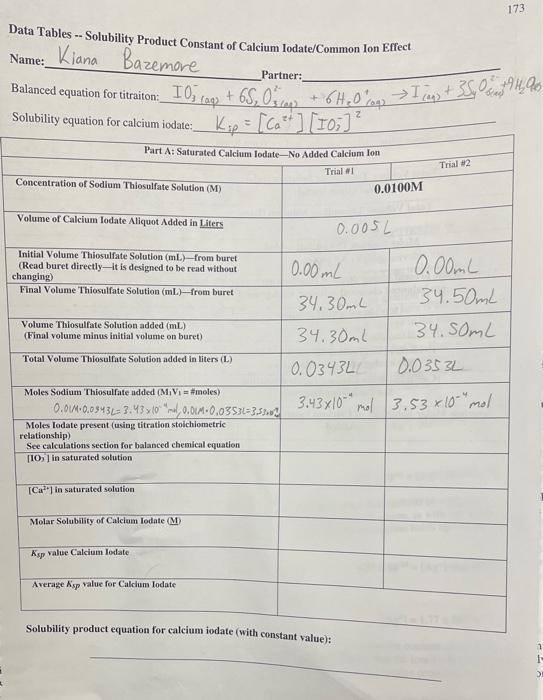 173
Data Tables -- Solubility Product Constant of Calcium Iodate/Common Ion Effect
Name: Kiana Bazemore
Partner:
Balanced equation for titraiton: IO₃⁻(aq) + 6S₂O₃²⁻(aq) + 6H₃O⁺(aq) → I⁻(aq) + 3S₄O₆²⁻(aq) + 9H₂O(l)
Solubility equation for calcium iodate: Ksp = [Ca²⁺][IO₃⁻]²
Part A: Saturated Calcium Iodate—No Added Calcium Ion
Trial #1 Trial #2
Concentration of Sodium Thiosulfate Solution (M) 0.0100M
Volume of Calcium Iodate Aliquot Added in Liters 0.005L
Initial Volume Thiosulfate Solution (mL)—from buret
(Read buret directly—it is designed to be read without
changing) 0.00mL 0.00mL
Final Volume Thiosulfate Solution (mL)—from buret 34.30mL 34.50mL
Volume Thiosulfate Solution added (mL)
(Final volume minus initial volume on buret) 34.30ml 34.50mL
Total Volume Thiosulfate Solution added in liters (L) 0.0343L 0.0353L
Moles Sodium Thiosulfate added (M₁V₁ = #moles) 3.43x10⁻⁴ mol 3.53x10⁻⁴ mol
0.01M·0.0343L=3.43x10⁻⁴mol, 0.01M·0.0353L=
Moles Iodate present (using titration stoichiometric
relationship)
See calculations section for balanced chemical equation
[IO₃⁻] in saturated solution
[Ca²⁺] in saturated solution
Molar Solubility of Calcium Iodate (M)
Ksp value Calcium Iodate
Average Ksp value for Calcium Iodate
Solubility product equation for calcium iodate (with constant value):